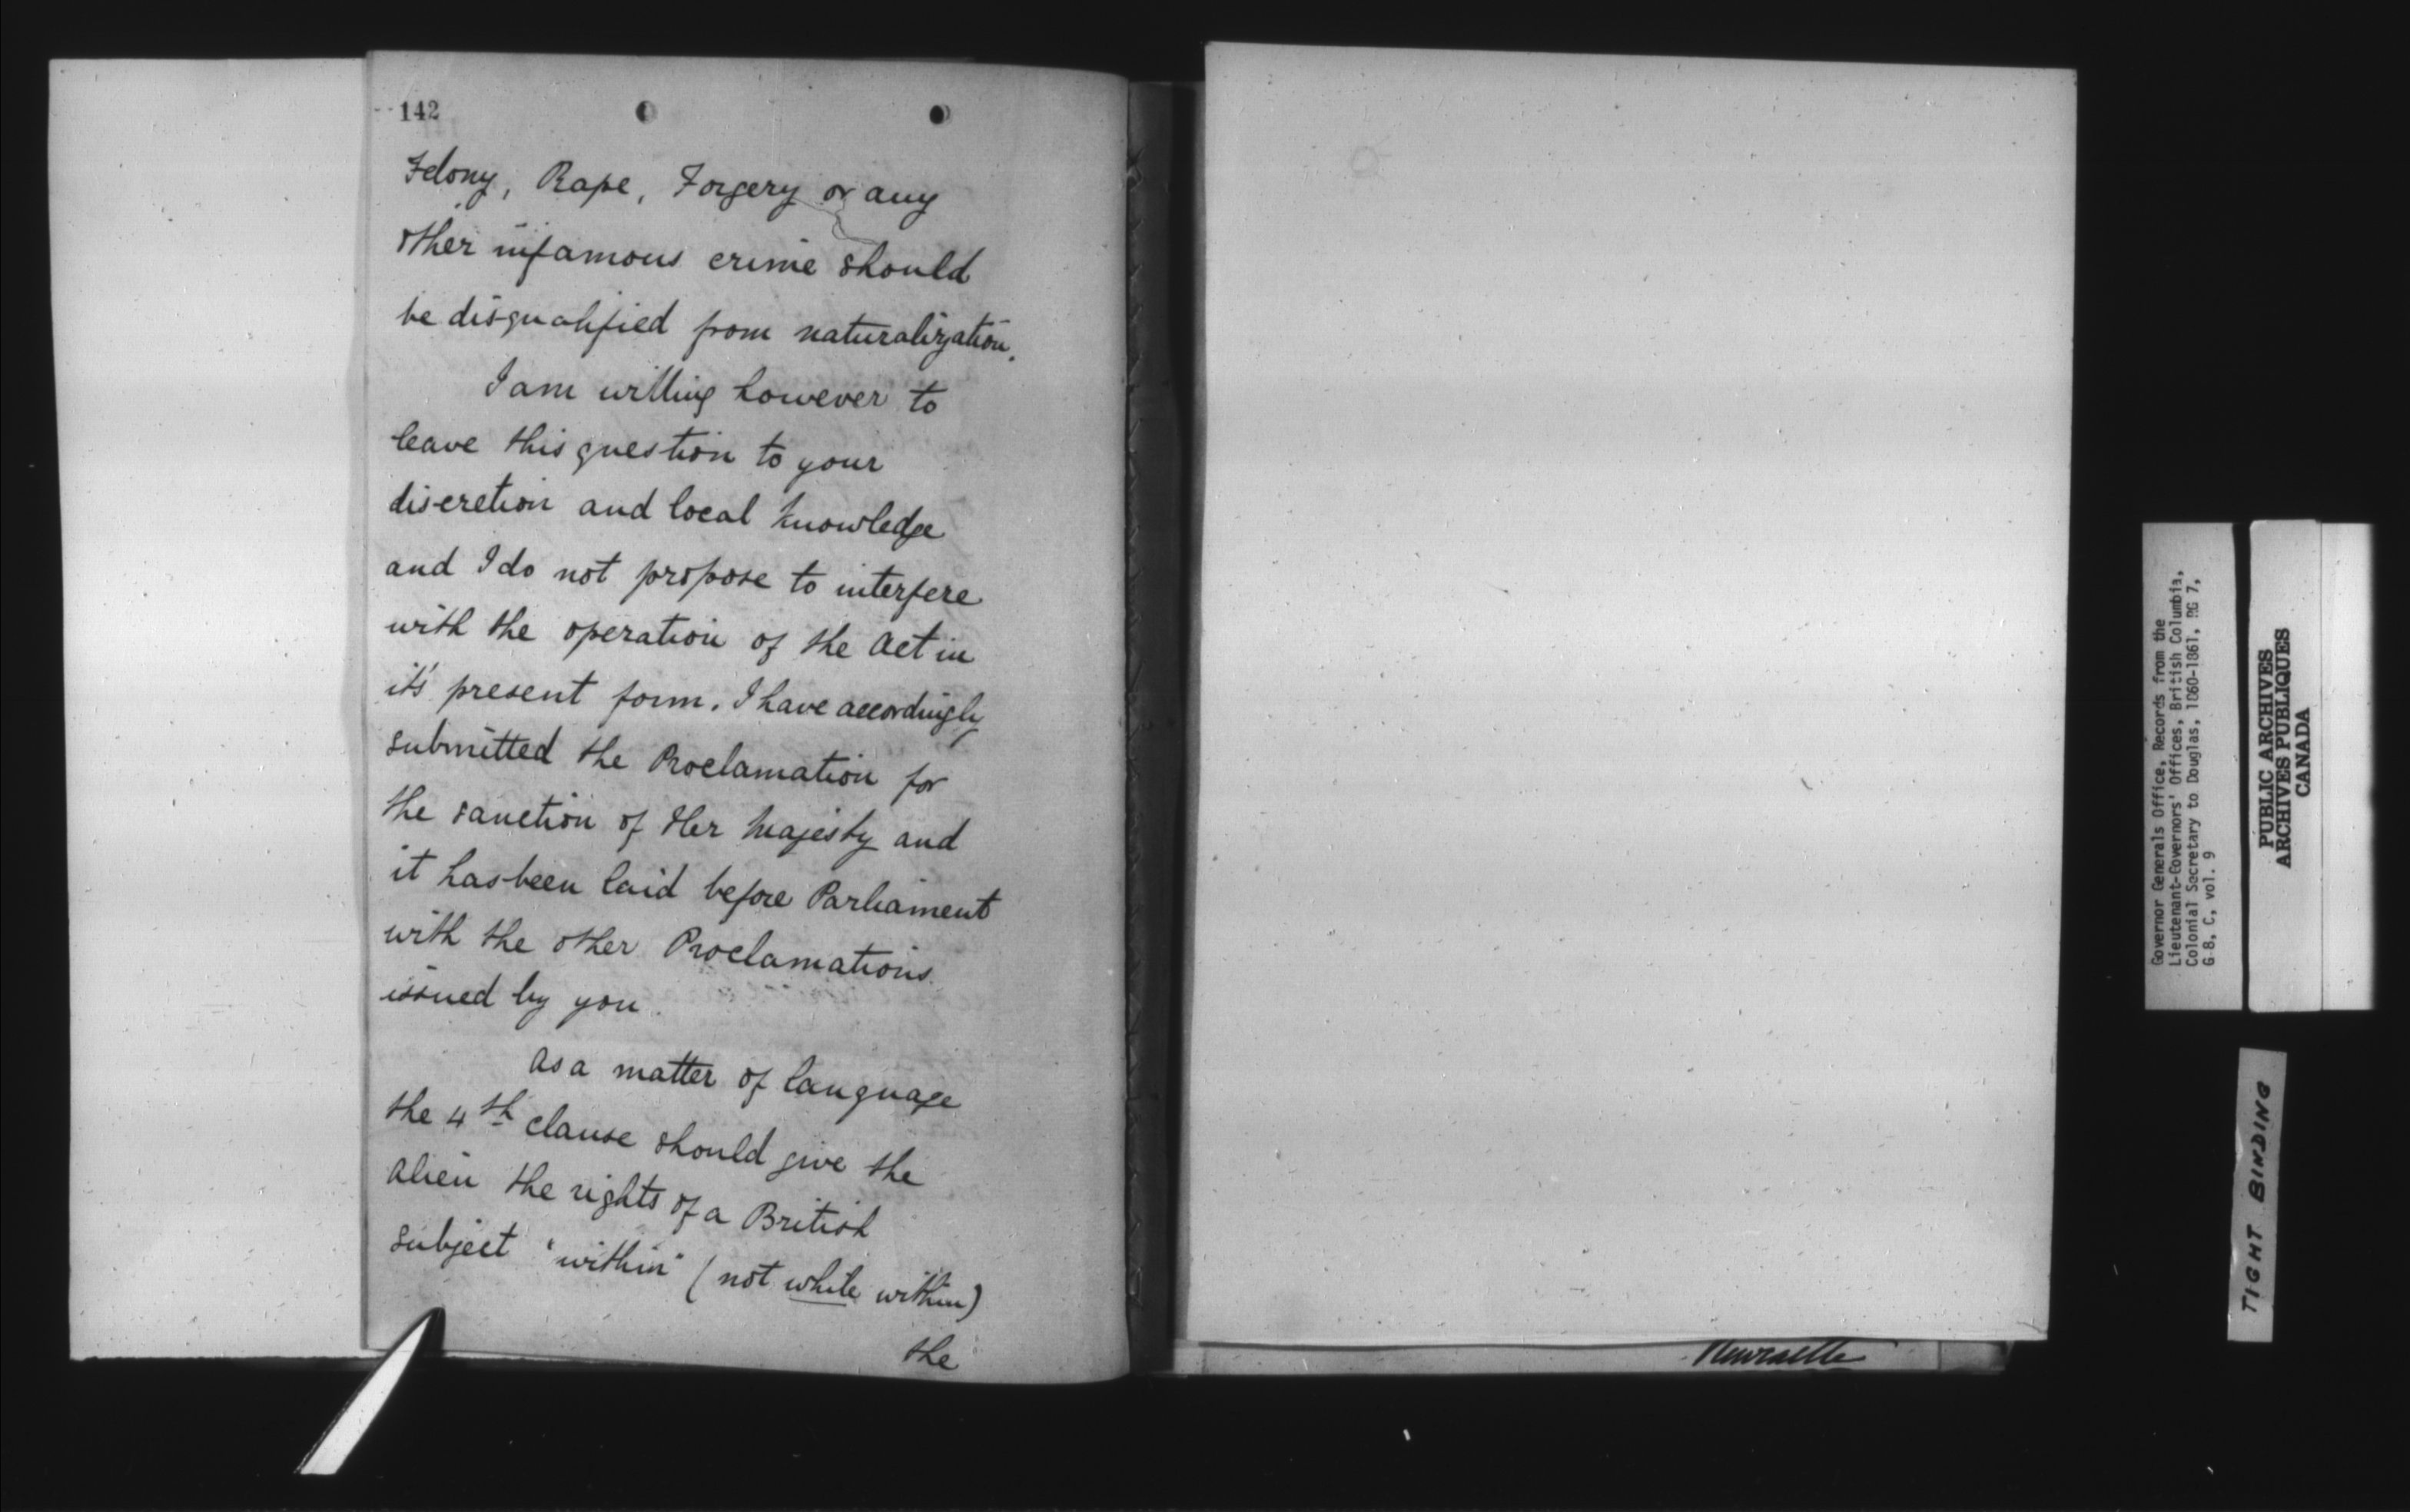 142
Felony, Rape, Forgery or any
other infamous crime should
be disqualified from naturalization.
I am willing however to
leave this question to your
discretion and local knowledge
and I do not propose to interfere
with the operation of the Act in
it's present form. I have accordingly
submitted the Proclamation for
the sanction of Her Majesty and
it has been laid before Parliament
with the other Proclamations
issued by you.
As a matter of language
the 4th clause should give the
Alien the rights of a British
subject "within" (not while within)
the
Governor Generals Office, Records from the
Lieutenant-Governors' Offices, British Columbia,
Colonial Secretary to Douglas, 1860-1861, RG 7,
G 8, C, vol. 9
PUBLIC ARCHIVES
ARCHIVES PUBLIQUES
CANADA
TIGHT BINDING